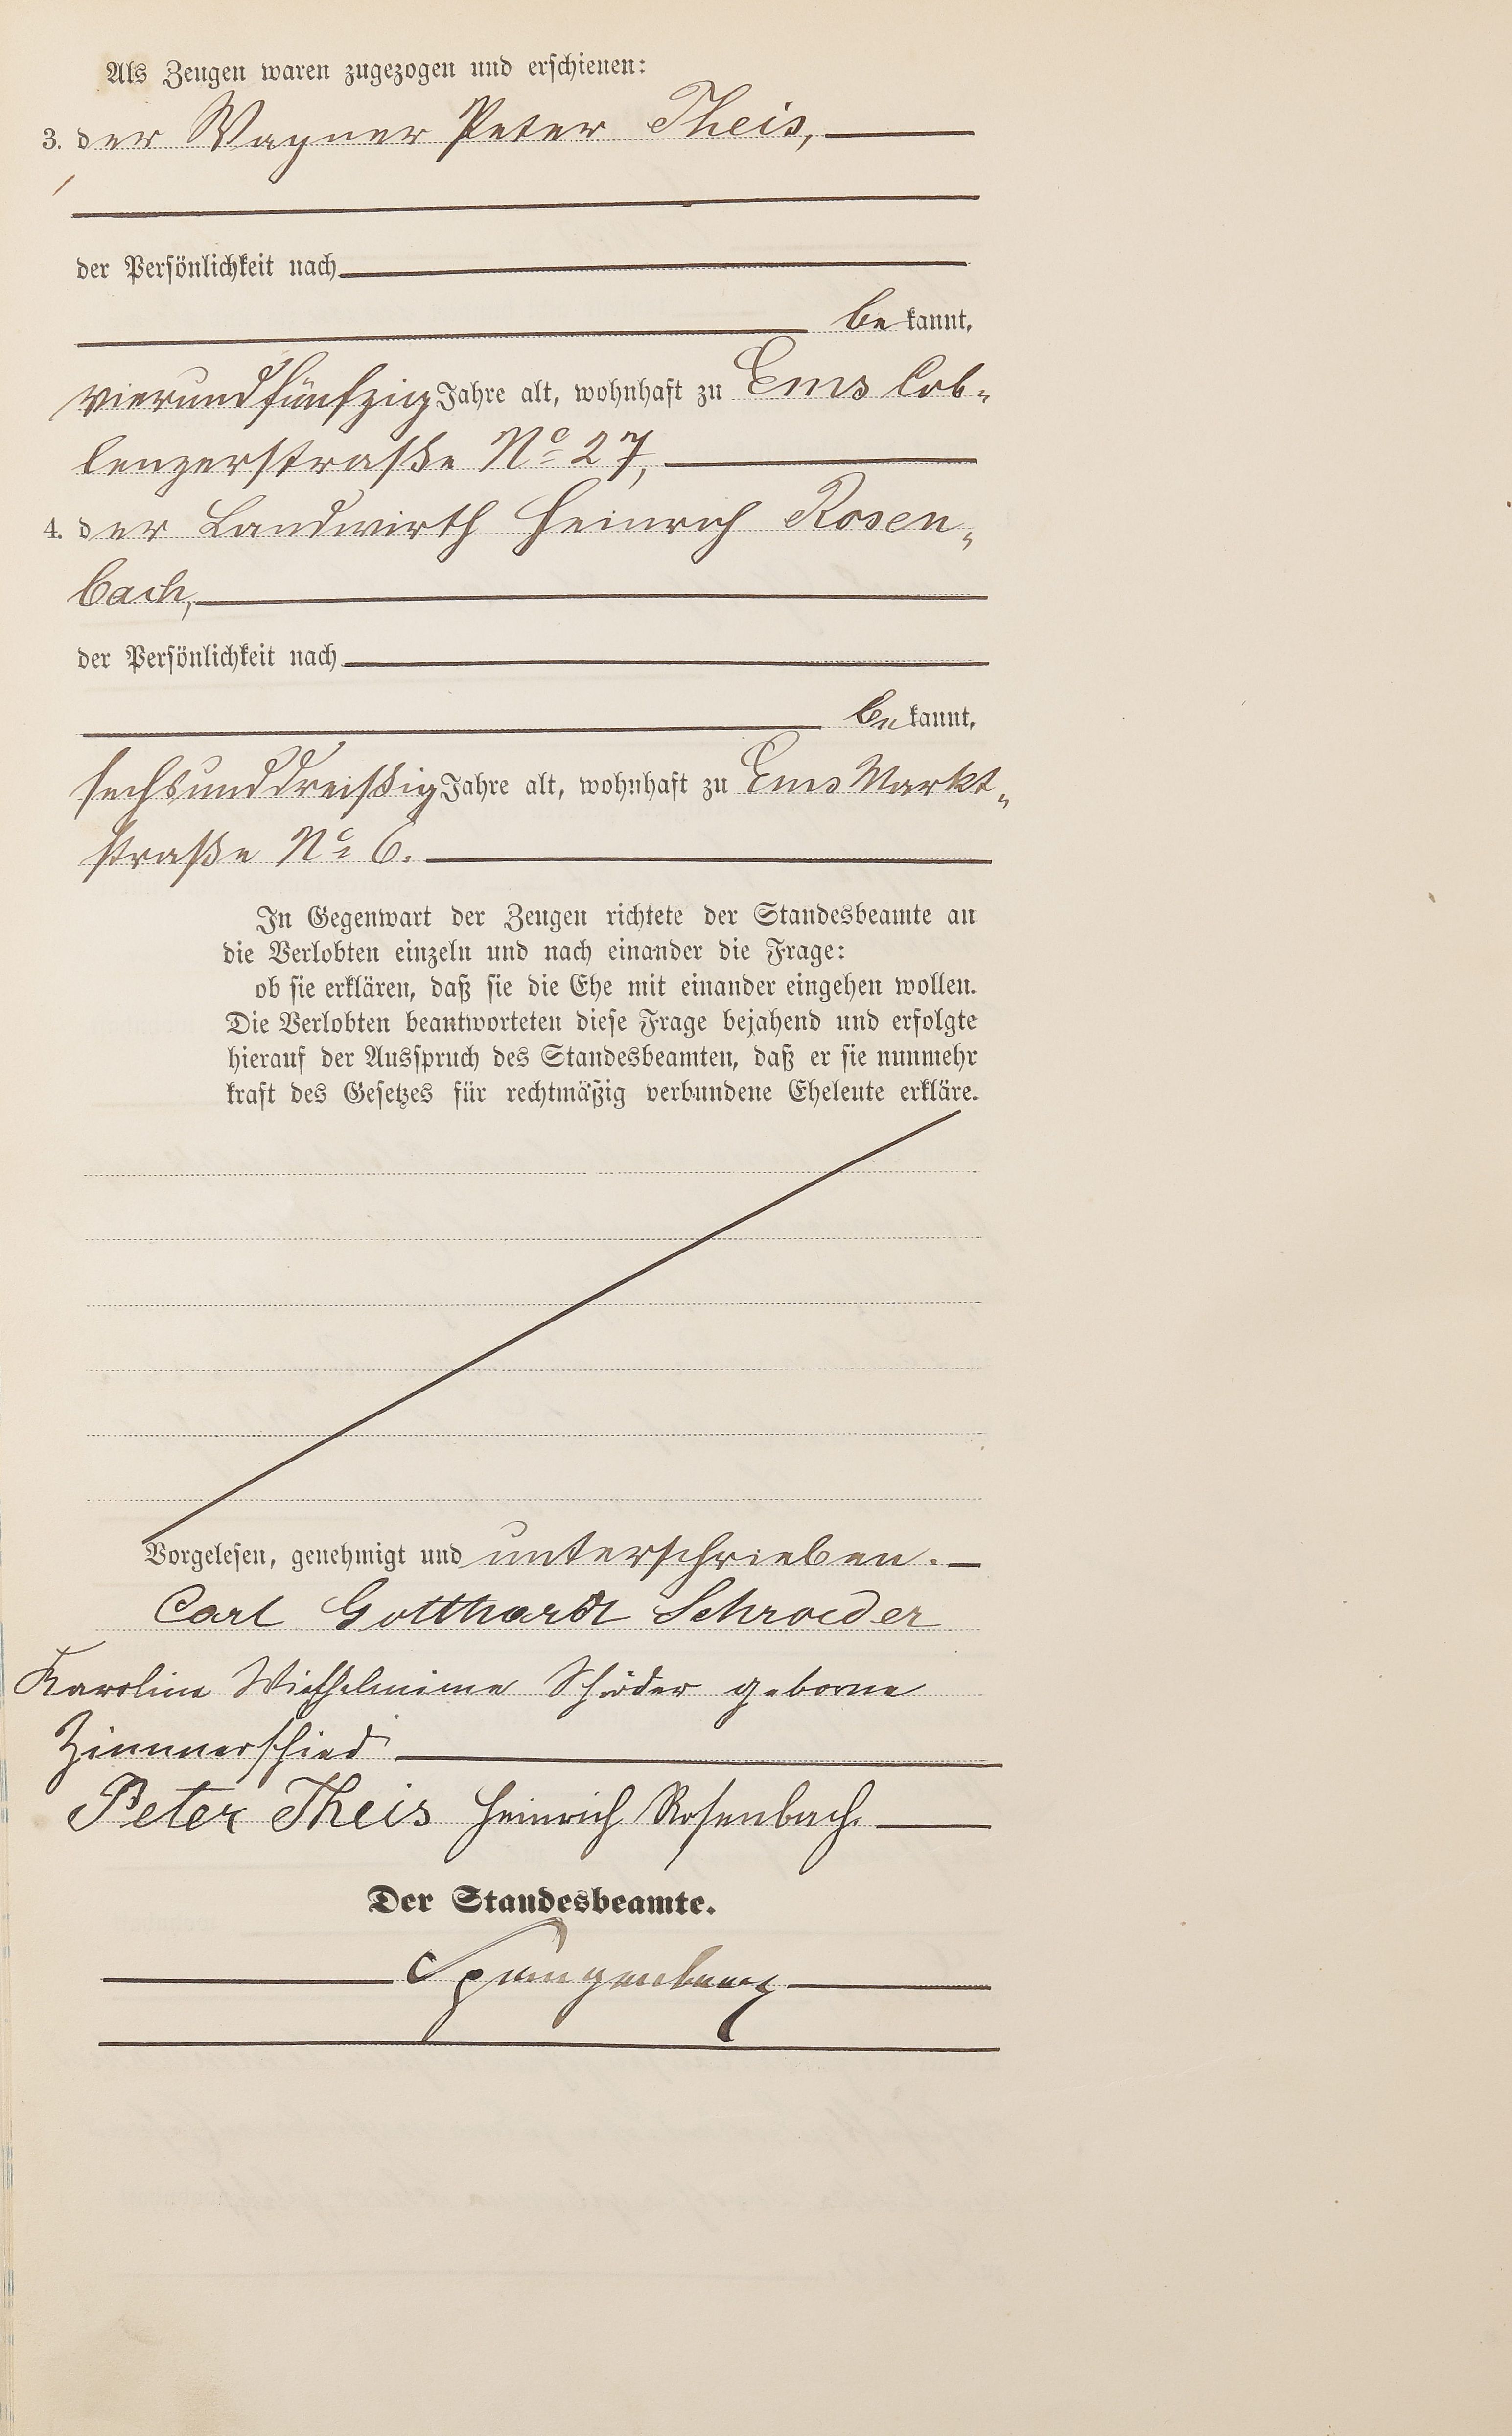 Als Zeugen waren zugezogen und erschienen:
3. der Wagner Peter Theis,
der Persönlichkeit nach
bekannt,
vierundfünfzig Jahre alt, wohnhaft zu Ems Cob-
lenzerstraße No 27,
4. der Landwirth Heinrich Rosen-
bach,
der Persönlichkeit nach
bekannt,
sechsunddreißig Jahre alt, wohnhaft zu Ems Markt-
straße No 6.
In Gegenwart der Zeugen richtete der Standesbeamte an
die Verlobten einzeln und nach einander die Frage:
ob sie erklären, daß sie die Ehe mit einander eingehen wollen.
Die Verlobten beantworteten diese Frage bejahend und erfolgte
hierauf der Ausspruch des Standesbeamten, daß er sie nunmehr
kraft des Gesetzes für rechtmäßig verbundene Eheleute erkläre.
Vorgelesen, genehmigt und unterschrieben.
Carl Gotthardt Schroeder
Karoline Wilhelmine Schröder geborne
Zimmerschied
Peter Theis Heinrich Rosenbach.
Der Standesbeamte.
Spangenberg